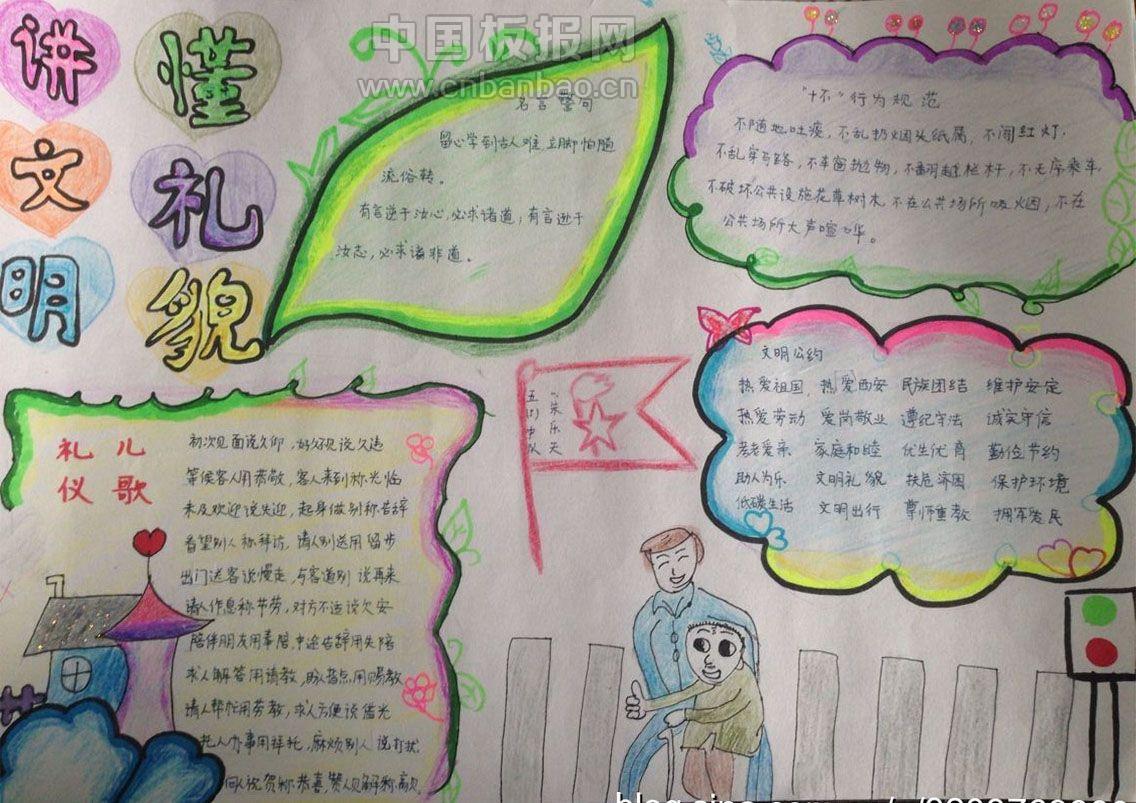 讲文明
懂礼貌
中国板报网
www.cnbanbao.cn
名言 警句
留心学到古人难 立脚怕随
流俗转。
有言逆于汝心,必求诸道;有言逊于
汝志,必求诸非道。
"十不"行为规范
不随地吐痰,不乱扔烟头纸屑,不闯红灯,
不乱穿马路,不车窗抛物,不翻越栏杆,不无序乘车,
不破坏公共设施花草树木,不在公共场所吸烟,不在
公共场所大声喧哗。
文明公约
热爱祖国 热爱西安 民族团结 维护安定
热爱劳动 爱岗敬业 遵纪守法 诚实守信
孝老爱亲 家庭和睦 优生优育 勤俭节约
助人为乐 文明礼貌 扶危济困 保护环境
低碳生活 文明出行 尊师重教 拥军爱民
礼仪儿歌
初次见面说久仰,好久不见说久违
等候客人用恭敬,客人来到称光临
未及欢迎说失迎,起身做别称告辞
看望别人称拜访,请人别送用留步
出门送客说慢走,与客道别说再来
请人休息称节劳,对方不适说欠安
陪伴朋友用奉陪,中途告辞用失陪
求人解答用请教,盼人指点用赐教
请人帮忙用劳教,求人方便说借光
托人办事用拜托,麻烦别人说打扰
向人祝贺称恭喜,赞人见解称高见